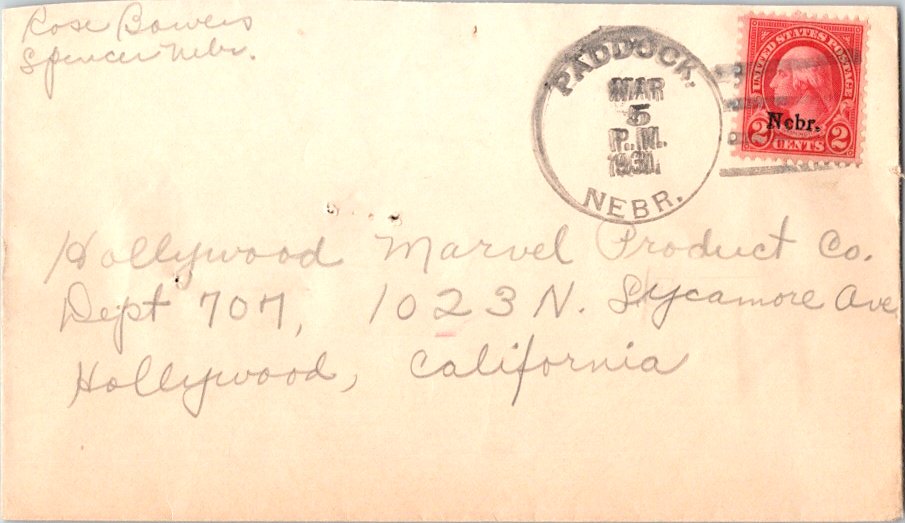 Rose Bowers
Spencer Nebr.
PADDOCK.
MAR
5
P.M.
NEBR.
UNITED STATES POSTAGE
Nebr.
2 CENTS 2
Hollywood Marvel Product Co.
Dept 707, 1023 N. Sycamore Ave
Hollywood, California